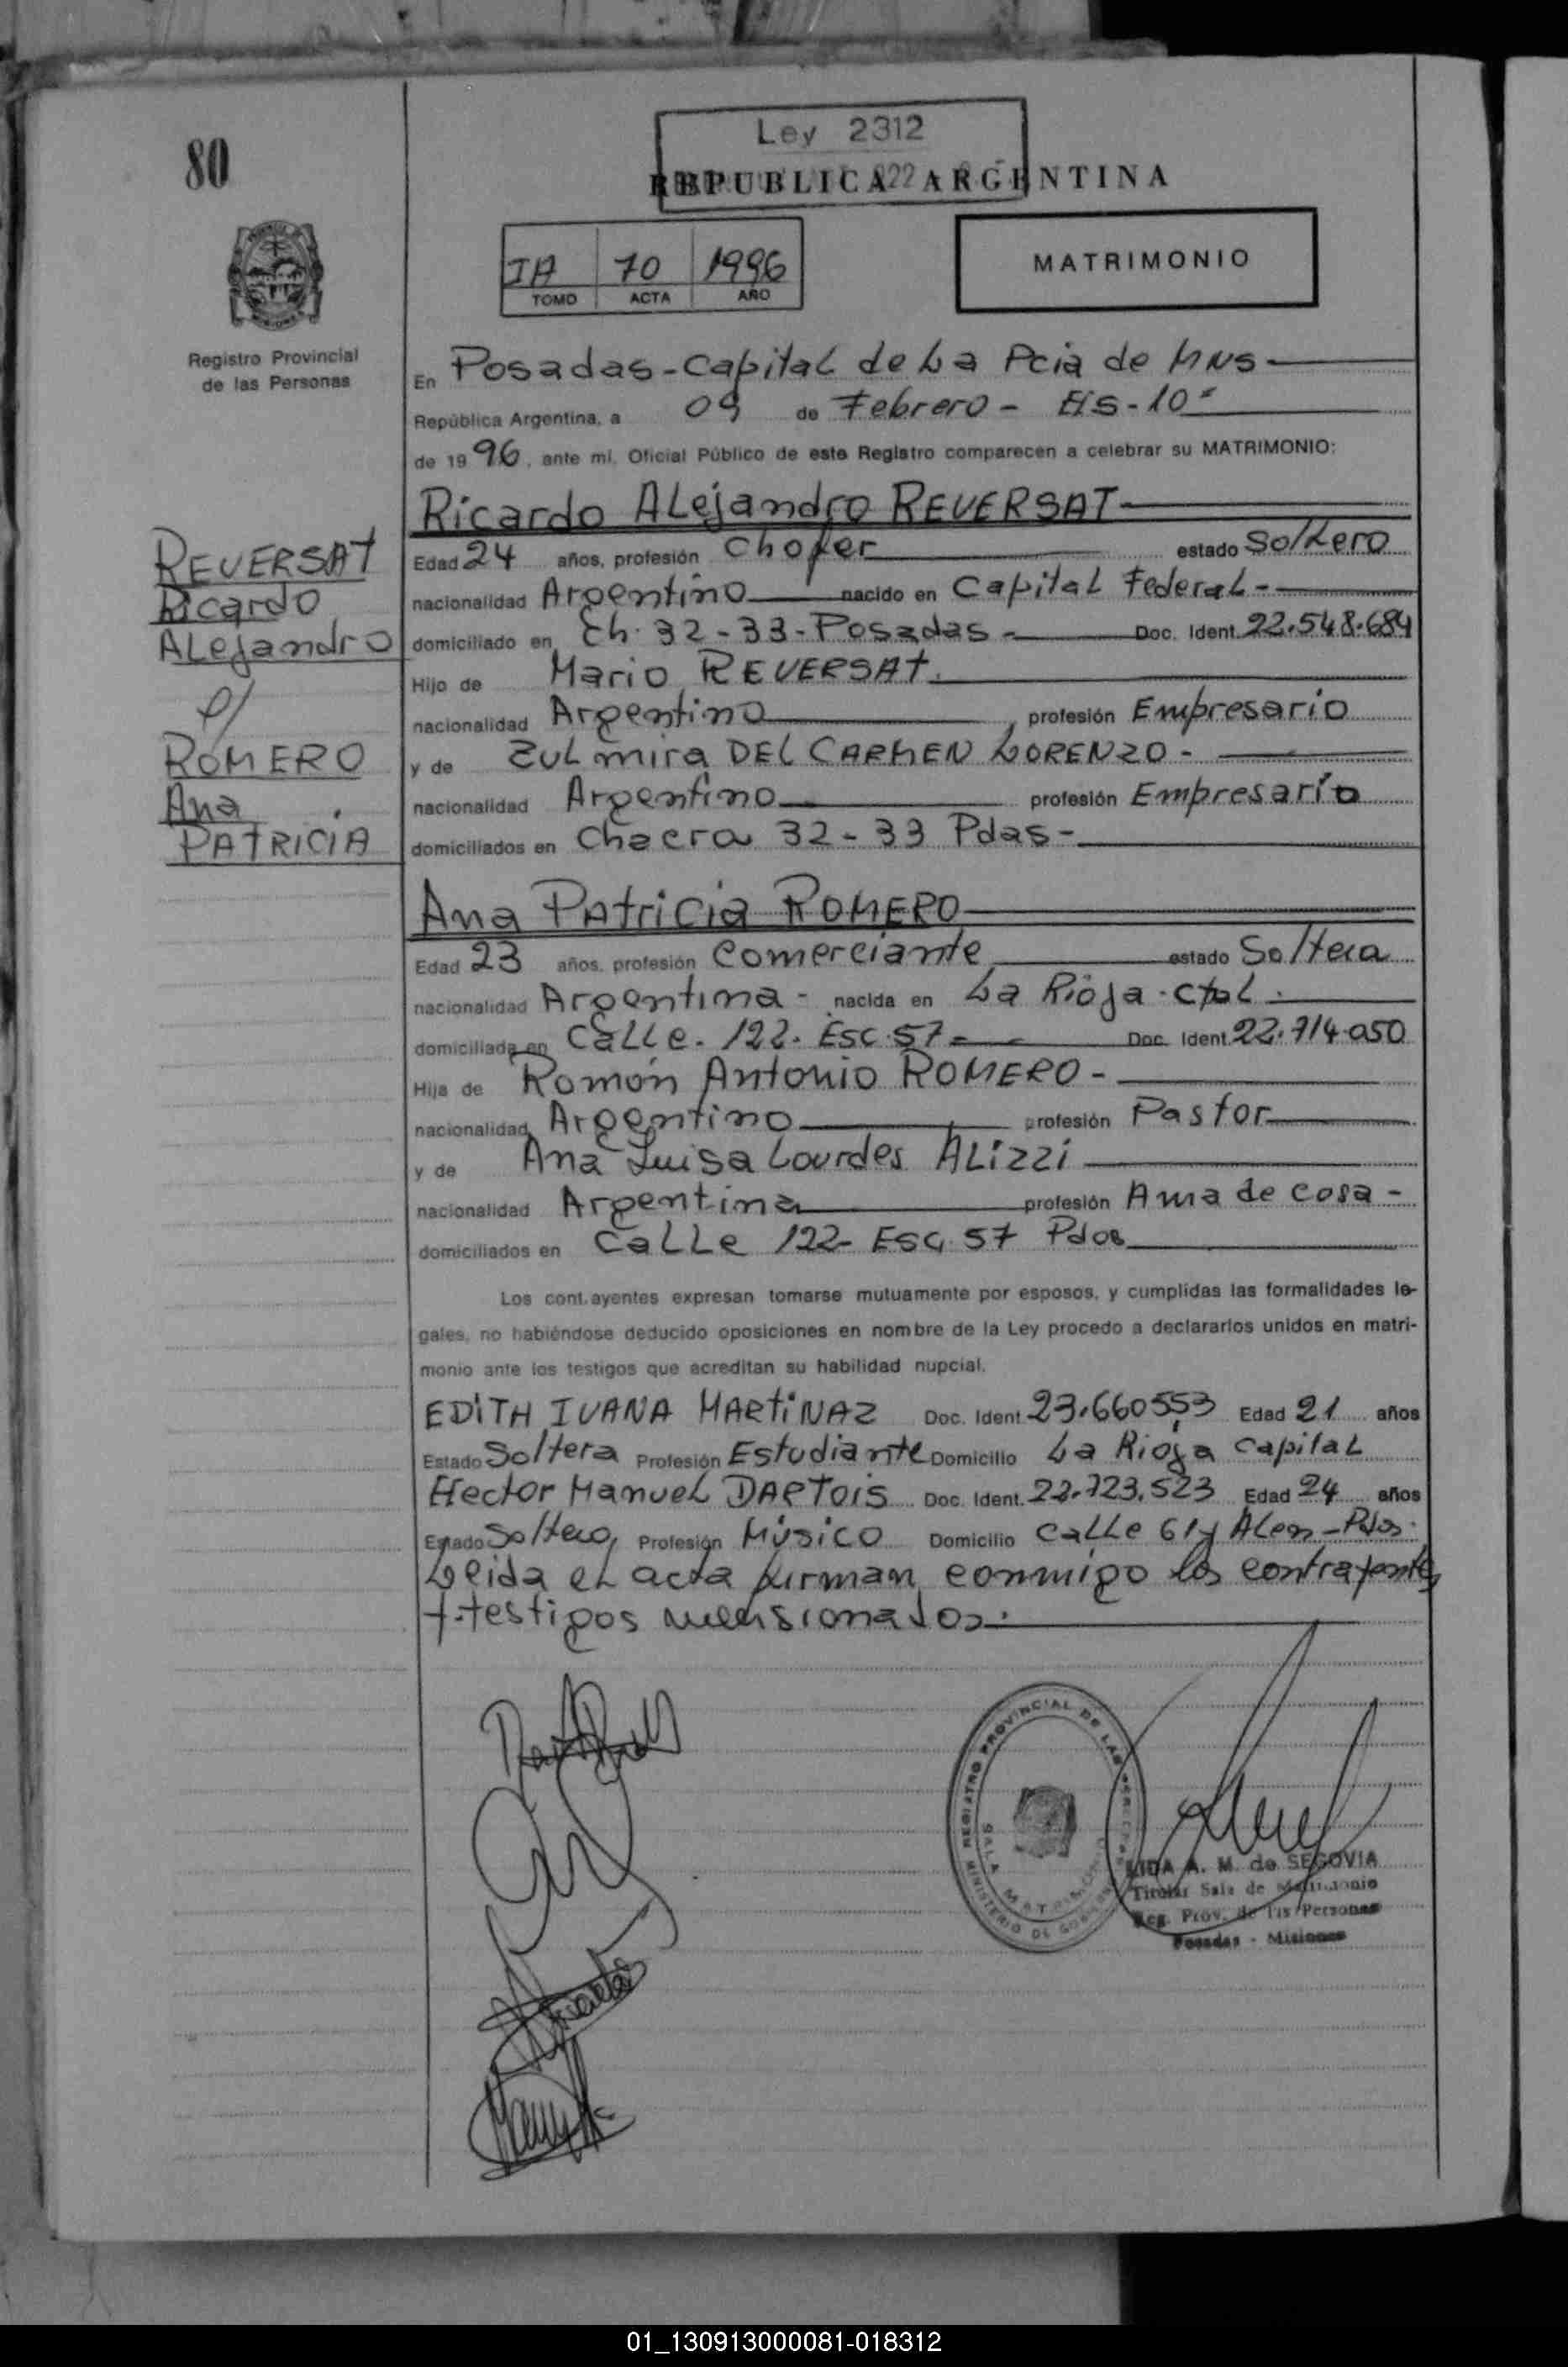 80
Ley 2312
REPUBLICA ARGENTINA
IA 70 1996
TOMO ACTA AÑO
MATRIMONIO
Registro Provincial
de las Personas
En Posadas - Capital de La Pcia de MNS
República Argentina, a 09 de Febrero - HS - 10
de 1996, ante mi, Oficial Público de este Registro comparecen a celebrar su MATRIMONIO:
Ricardo ALejandro REVERSAT
REVERSAT
Ricardo
ALejandro
c/
ROMERO
Ana
PATRICIA
Edad 24 años, profesión Chofer estado Soltero
nacionalidad Argentino nacido en Capital Federal -
domiciliado en Ch. 32-33 - Posadas - Doc. Ident. 22.548.684
Hijo de Mario REVERSAT.
nacionalidad Argentino, profesión Empresario
y de ZULmira DEL CARMEN LORENZO -
nacionalidad Argentino profesión Empresario
domiciliados en Chacra 32-33 Pdas -
Ana PAtricia ROMERO
Edad 23 años, profesión Comerciante estado Soltera
nacionalidad Argentina - nacida en La Rioja - Ctal.
domiciliada en CaLLe. 122. Esc. 57 - Doc. Ident. 22.714.050
Hija de Ramón Antonio ROMERO -
nacionalidad Argentino profesión Pastor
y de Ana Luisa Lourdes ALizzi
nacionalidad Argentina profesión Ama de casa -
domiciliados en CaLLe 122 - Esc. 57 Pdas
Los contrayentes expresan tomarse mutuamente por esposos, y cumplidas las formalidades le-
gales, no habiéndose deducido oposiciones en nombre de la Ley procedo a declararlos unidos en matri-
monio ante los testigos que acreditan su habilidad nupcial.
EDITH IVANA MARTINAZ Doc. Ident. 23.660553 Edad 21 años
Estado Soltera Profesión Estudiante Domicilio La Rioja Capital
Hector Manuel DARTois Doc. Ident. 22.723.523 Edad 24 años
Estado Soltero, Profesión Músico Domicilio calle 61 y ALem - Pdas.
Leida el acta firman conmigo los contrayentes
y testigos mensionados.
REGISTRO PROVINCIAL DE LAS PERSONAS
SALA MATRIMONIO
MINISTERIO DE GOBIERNO
LIDA A. M. de SEGOVIA
Titular Sala de Matrimonio
Reg. Prov. de las Personas
Posadas - Misiones
01_130913000081-018312